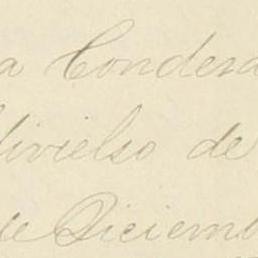 a Condesa
livielso de
de Diciemb